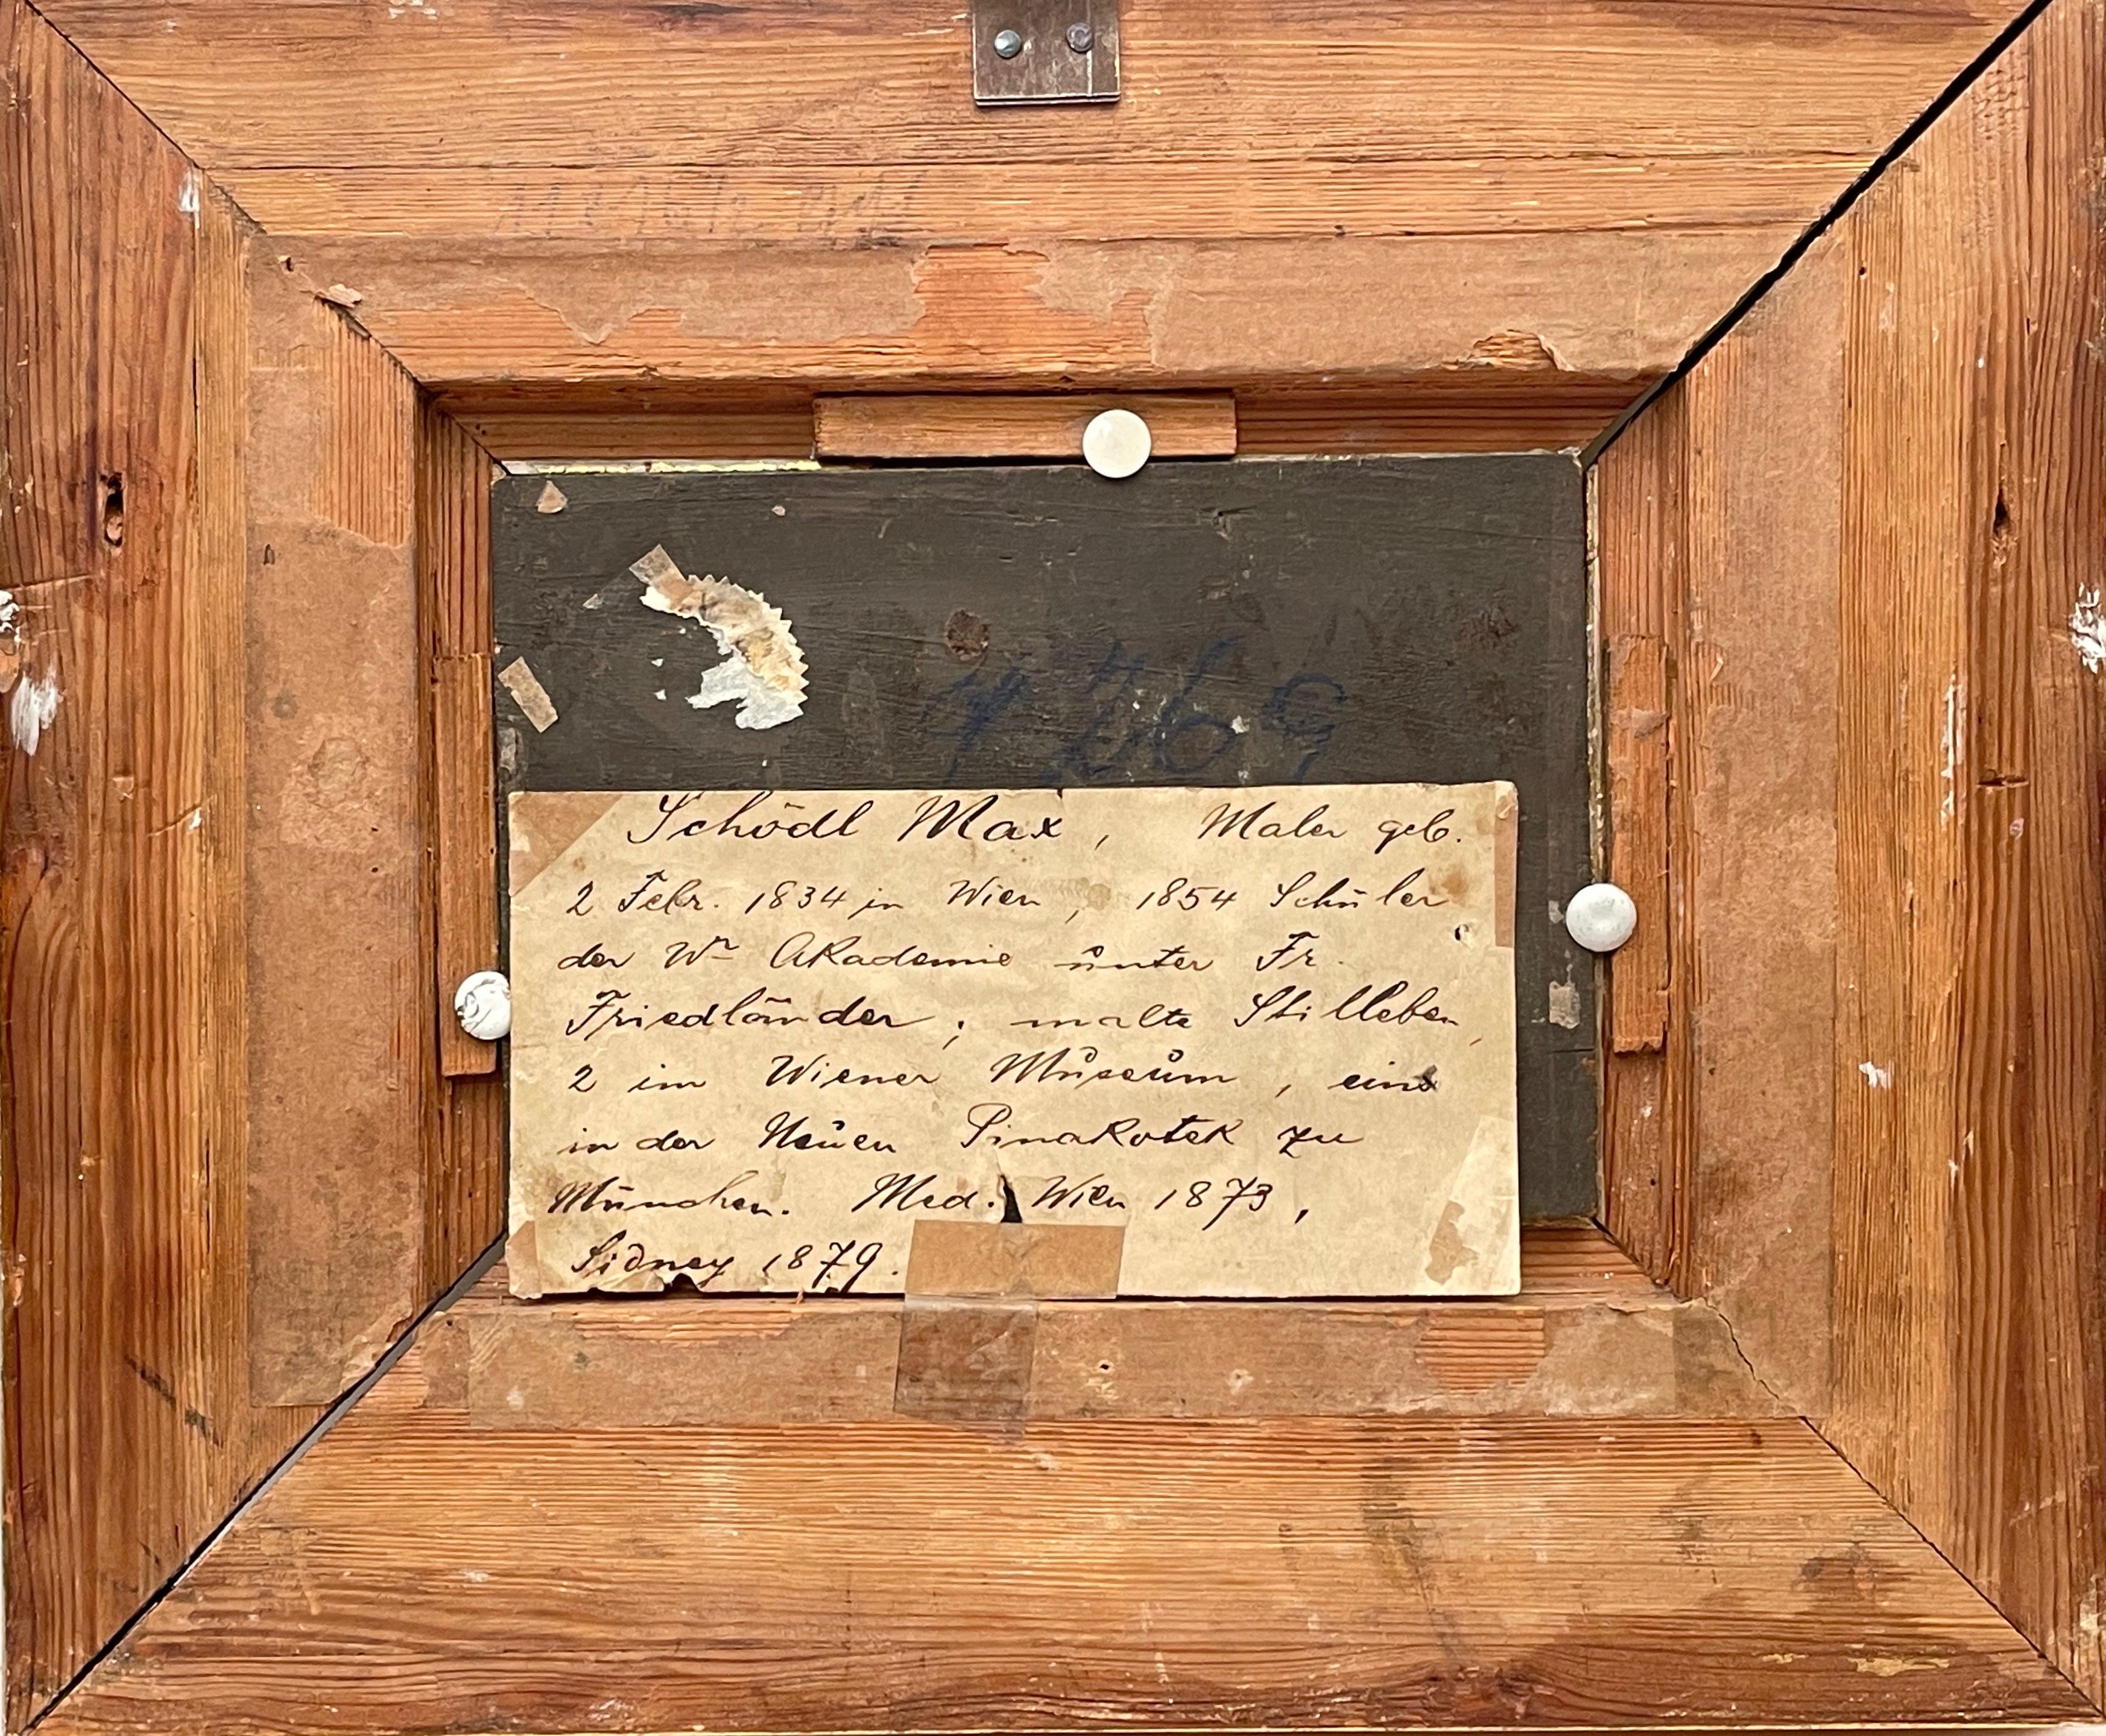 Schödl Max, Maler geb.
2 Febr. 1834 in Wien, 1854 Schüler
der Wr Akademie unter Fr.
Friedländer; malte Stilleben,
2 im Wiener Museum, eins
in der Neuen Pinakotek zu
München. Med. Wien 1873,
Sidney 1879.